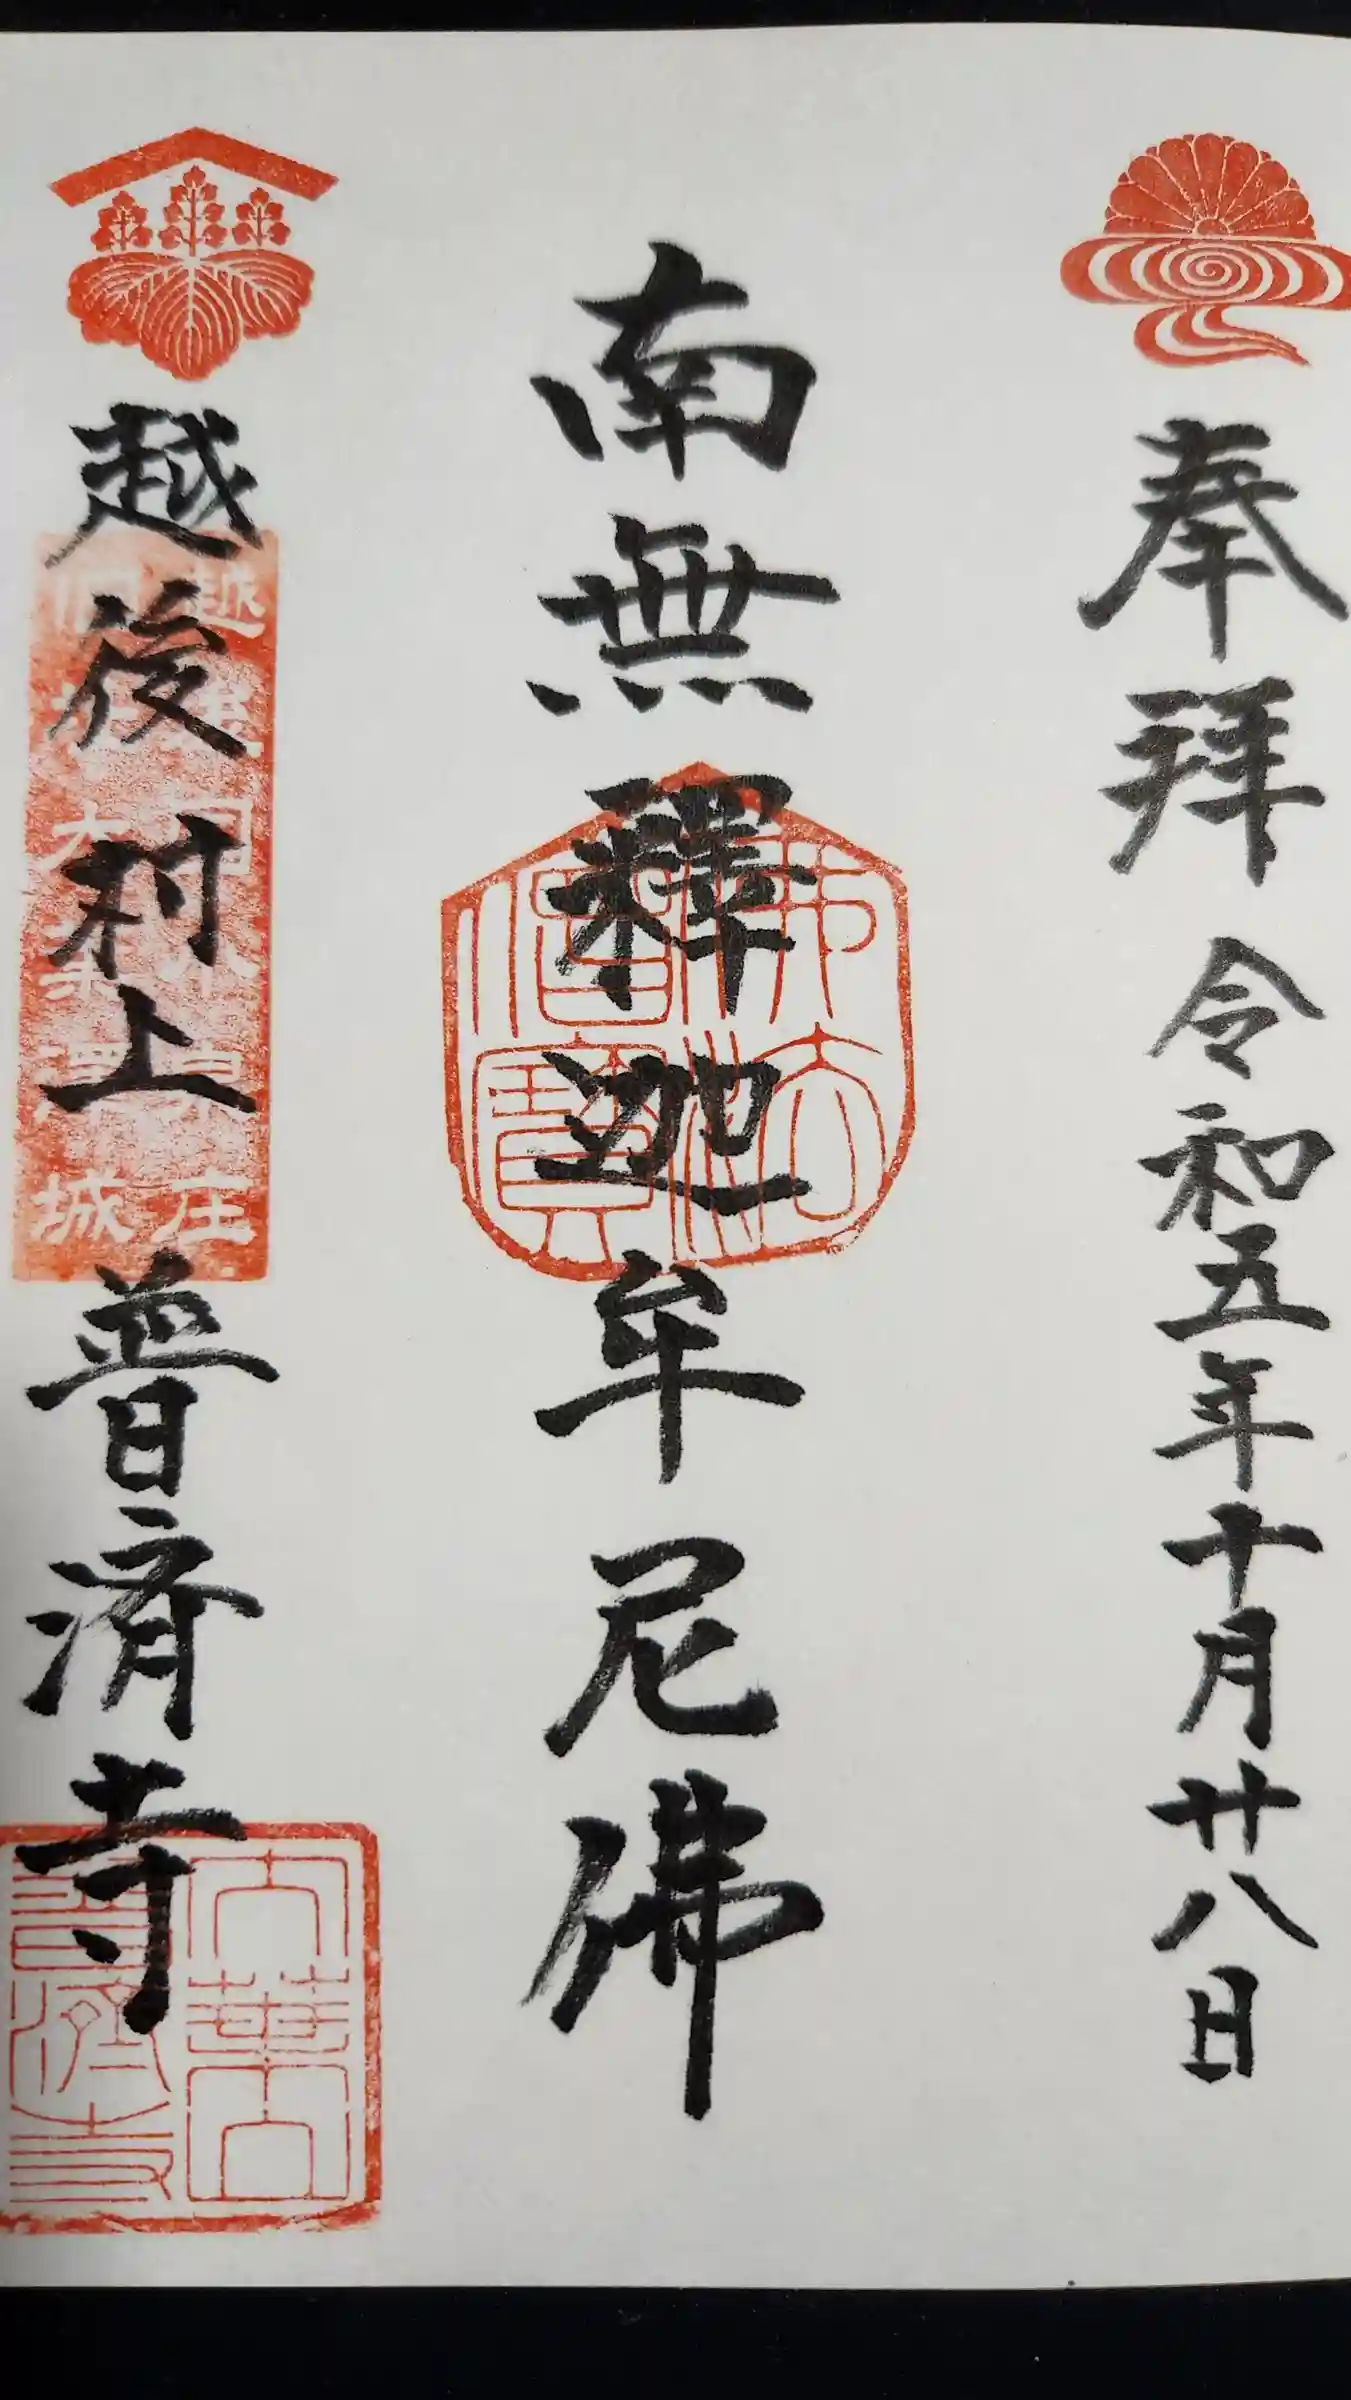 奉拜 令和五年十月廿八日
南無釋迦牟尼佛
佛法僧寶
越後村上 普済寺